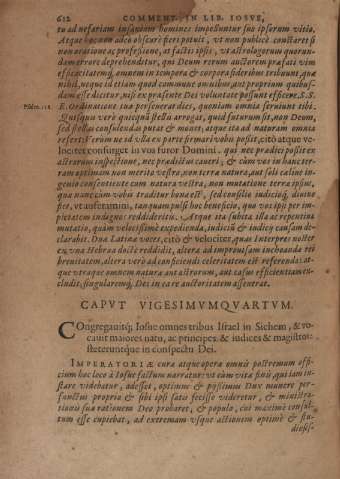 612 COMMENT. IN LIB. IOSVE,
tu ad nefariam insaniam homines impelluntur suo ipsorum vitio.
Atque hoc non adeo obscurè fieri potuit, vt non publicè constaret si
non oratione ac professione, at factis ipsis, vt astrologorum quorun-
dam errore deprehenditur, qui Deum rerum auctorem præfati vim
efficacitatemq́; omnem in tempora & corpora sideribus tribuunt, quæ
nihil, neque id etiam quod commune omnibus, aut proprium quibus-
dam esse dicitur, nisi ex præsente Dei voluntate possunt efficere, S. S.
Psalm. 118. E. Ordinatione tua perseuerat dies, quoniam omnia seruiunt tibi.
Quisquis verò quicquā stella arrogat, quid futurum sit, non Deum,
sed stellas consulendas putat & monet; atque ita ad naturam omnia
refert: Verùm ne id vlla ex parte firmari vobis possit, citò atque ve-
lociter consurget in vos furor Domini. qui nec prædici posset ex
astrorum inspectione, nec prædictus caueri; & cùm vos in hanc ter-
ram optimam non merito vestro, non terræ natura, aut soli cælíue in-
genio consentiente cum natura vestra, non mutatione terræ ipsius,
quæ nunc tùm vobis traditur bona est, sed consilio iudicioq́; diuino
fiet, vt auferamini, tanquam pulsi hoc beneficio, quo vos ipsi per im-
pietatem indignos reddideritis. Atque ita subita illa ac repentina
mutatio, quàm velocissimè expedienda, iudiciũ & iudicij causam de-
clarabit. Dua Latinæ voces, citò & velociter, quas interpres noster
ex vna Hebræa doctè reddidit, altera ad improuisam inchoandæ rei
breuitatem, altera verò ad conficiendi celeritatem est referenda: at-
que vtraque omnem naturæ aut astrorum, aut casus efficientiam ex-
cludit, singularemq́; Dei in ea re auctoritatem assentrat.
CAPVT VIGESIMVMQVARTVM.
Congregauitq́; Iosue omnes tribus Israel in Sichem, & vo-
cauit maiores natu, ac principes & iudices & magistros:
steteruntque in conspectu Dei.
IMPERATORIÆ curæ atque operæ omnis postremum offi-
cium hoc loco à Iosue factum narratur: vt cùm vitæ finis, qui iam in-
stare videbatur, adesset, optimus & pijssimus Dux munere per-
functus proprio & sibi ipsi satis fecisse videretur, & ministra-
tionis suæ rationem Deo probaret; & populo, cui maximè consul-
tum esse cupiebat, ad extremam vsque actionem optimè & stu-
diosis-